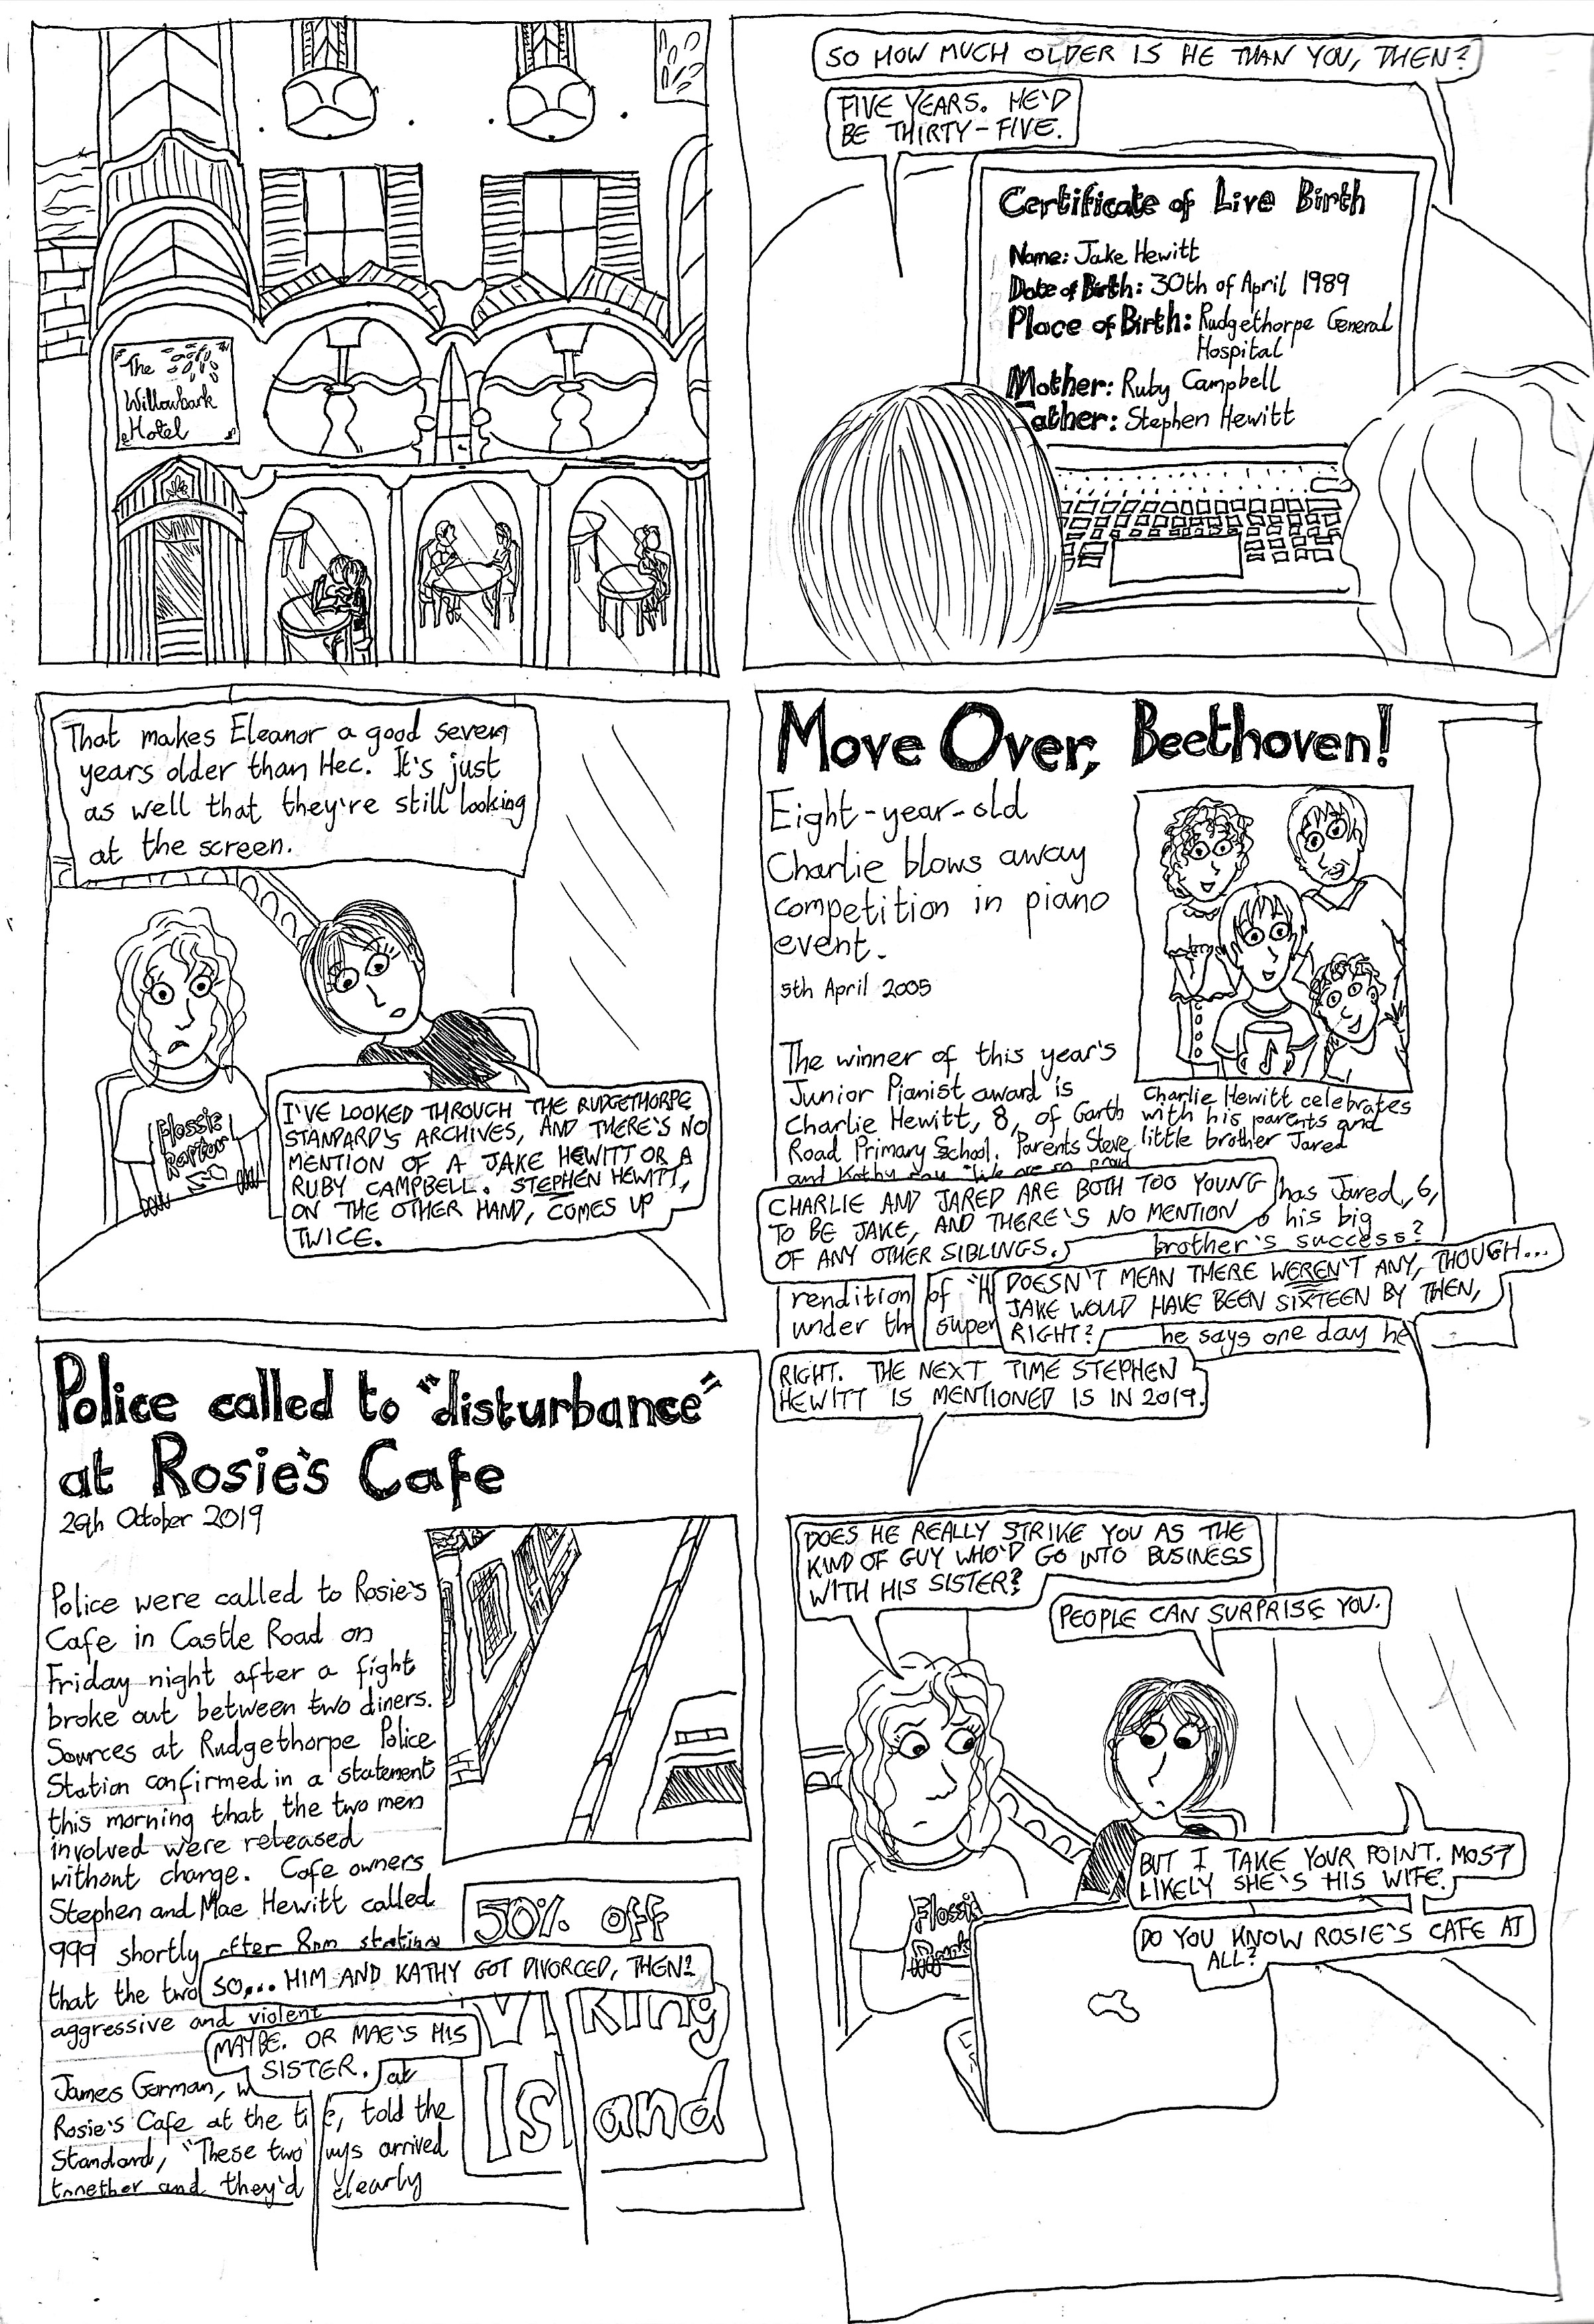 The
Willowbark
Hotel
SO HOW MUCH OLDER IS HE THAN YOU, THEN?
FIVE YEARS. HE'D
BE THIRTY-FIVE.
Certificate of Live Birth
Name: Jake Hewitt
Date of Birth: 30th of April 1989
Place of Birth: Rudgethorpe General
Hospital
Mother: Ruby Campbell
Father: Stephen Hewitt
That makes Eleanor a good seven
years older than Hec. It's just
as well that they're still looking
at the screen.
Flossie
I'VE LOOKED THROUGH THE RUDGETHORPE
STANDARD'S ARCHIVES, AND THERE'S NO
MENTION OF A JAKE HEWITT OR A
RUBY CAMPBELL. STEPHEN HEWITT,
ON THE OTHER HAND, COMES UP
TWICE.
Move Over, Beethoven!
Eight-year-old
Charlie blows away
competition in piano
event.
5th April 2005
The winner of this year's
Junior Pianist award is
Charlie Hewitt, 8, of Garth
Road Primary School. Parents Steve
and Kathy say "We are so proud
Charlie Hewitt celebrates
with his parents and
little brother Jared
CHARLIE AND JARED ARE BOTH TOO YOUNG
TO BE JAKE, AND THERE'S NO MENTION
OF ANY OTHER SIBLINGS.
has Jared, 6,
his big
brother's success?
rendition of "H
under th super
DOESN'T MEAN THERE WEREN'T ANY, THOUGH...
JAKE WOULD HAVE BEEN SIXTEEN BY THEN,
RIGHT?
he says one day he
RIGHT. THE NEXT TIME STEPHEN
HEWITT IS MENTIONED IS IN 2019.
Police called to "disturbance"
at Rosie's Cafe
26th October 2019
Police were called to Rosie's
Cafe in Castle Road on
Friday night after a fight
broke out between two diners.
Sources at Rudgethorpe Police
Station confirmed in a statement
this morning that the two men
involved were released
without charge. Cafe owners
Stephen and Mae Hewitt called
999 shortly after 8pm stating
that the two
aggressive and violent
50% off
Viking
Island
SO... HIM AND KATHY GOT DIVORCED, THEN?
MAYBE. OR MAE'S HIS
SISTER.
James Gorman, w at
Rosie's Cafe at the ti e, told the
Standard, "These two guys arrived
together and they'd clearly
DOES HE REALLY STRIKE YOU AS THE
KIND OF GUY WHO'D GO INTO BUSINESS
WITH HIS SISTER?
PEOPLE CAN SURPRISE YOU.
Flossie
BUT I TAKE YOUR POINT. MOST
LIKELY SHE'S HIS WIFE.
DO YOU KNOW ROSIE'S CAFE AT
ALL?